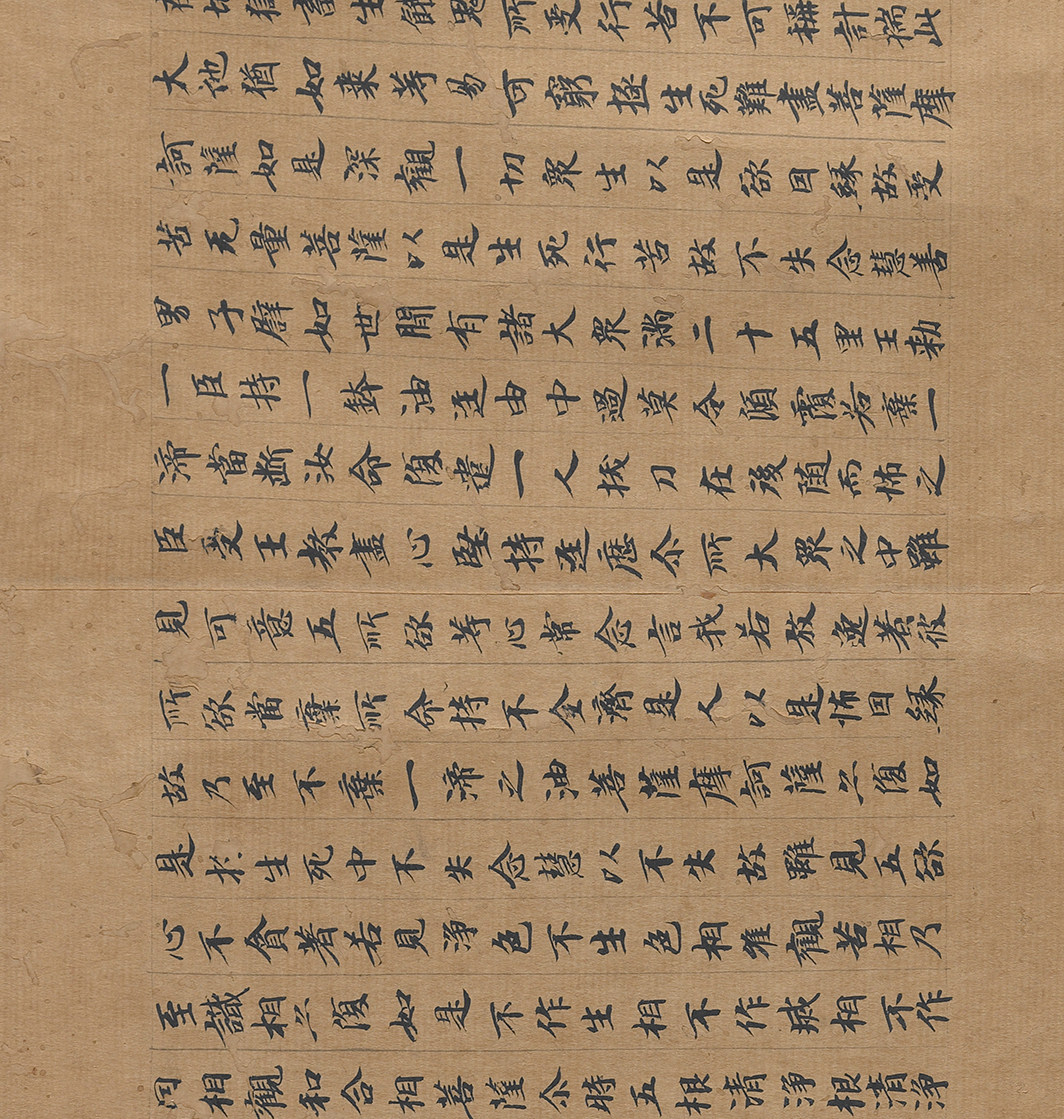 在地獄畜生餓鬼所受行苦不可稱計揣此
大地猶如来等易可窮極生死難盡菩薩摩
訶薩如是深觀一切衆生以是欲因緣故受
苦无量菩薩以是生死行苦故不失念慧善
男子譬如世間有諸大衆滿二十五里王勅
一臣持一鉢油逕由中過莫令傾覆若棄一
渧當斷汝命復遣一人拔刀在後隨而怖之
臣受王教盡心堅持逕歷尒所大衆之中雖
見可意五所欲等心常念言我若放逸著彼
所欲當棄所命持不全濟是人以是怖因緣
故乃至不棄一渧之油菩薩摩訶薩亦復如
是於生死中不失念慧以不失故雖見五欲
心不貪著若見淨色不生色相唯觀苦相乃
至識相亦復如是不作生相不作滅相不作
因相觀和合相菩薩尒時五根清淨根清淨